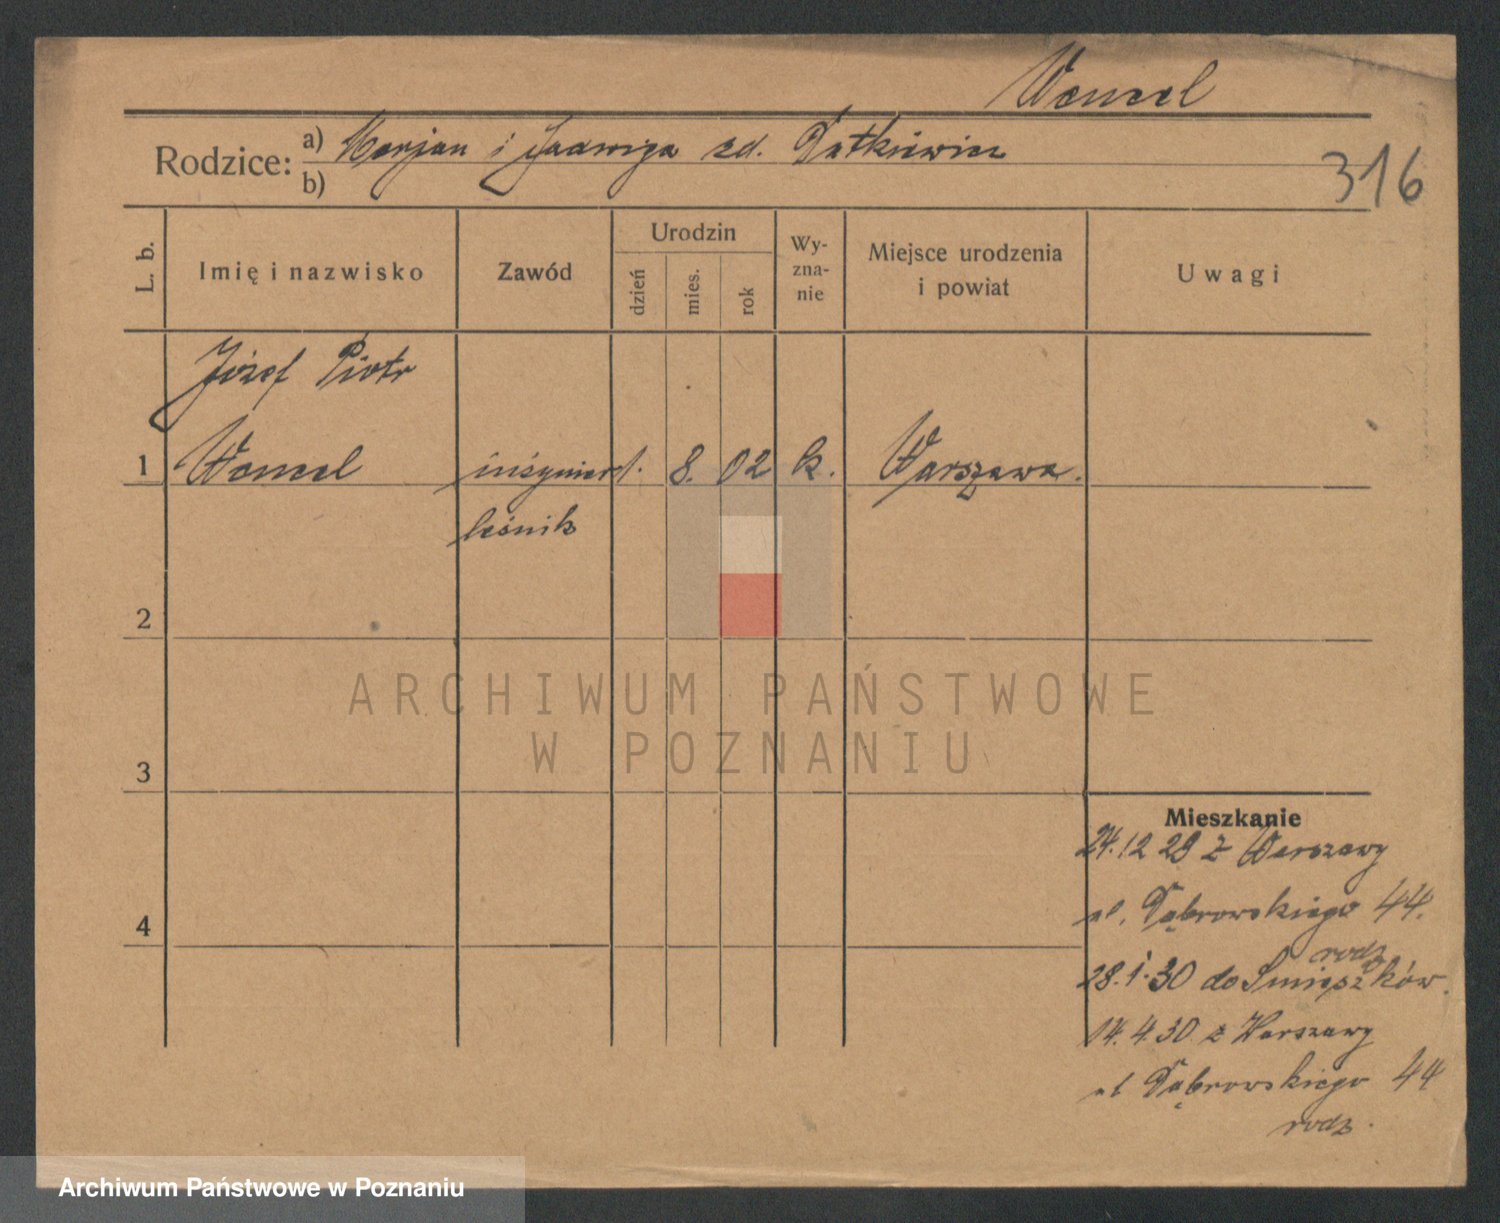 Wencel
Rodzice: a) Marjan i Jadwiga zd. Datkiewicz
b)
316
L. b.
Imię i nazwisko
Zawód
Urodzin
dzień
mies.
rok
Wy-
zna-
nie
Miejsce urodzenia
i powiat
Uwagi
Józef Piotr
1 Wencel inżynier 1. 8. 02 k. Warszawa.
leśnik
2
3
4
Mieszkanie
24.12 29 z Warszawy
ul. Dąbrowskiego 44.
rodz
28.1.30 do Śmieszków.
14.4.30 z Warszawy
ul Dąbrowskiego 44
rodz.
ARCHIWUM PAŃSTWOWE
W POZNANIU
Archiwum Państwowe w Poznaniu